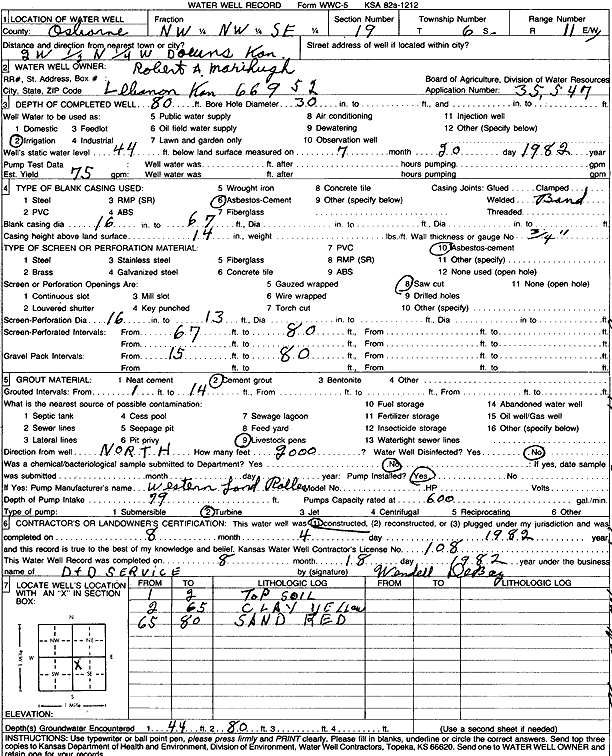 WATER WELL RECORD Form WWC-5 KSA 82a-1212
1 LOCATION OF WATER WELL Fraction Section Number Township Number Range Number
County: Osborne NW ¼ NW ¼ SE ¼ 19 T 6 S R 11 E/W
Distance and direction from nearest town or city? Street address of well if located within city?
2W ½ N ¼ W Downs Kan.
2 WATER WELL OWNER: Robert A Marihugh
RR#, St. Address, Box # : Board of Agriculture, Division of Water Resources
City, State, ZIP Code Lebanon Kan 66952 Application Number: 35,547
3 DEPTH OF COMPLETED WELL 80 ft. Bore Hole Diameter 30 in. to ft., and in. to ft.
Well Water to be used as: 5 Public water supply 8 Air conditioning 11 Injection well
1 Domestic 3 Feedlot 6 Oil field water supply 9 Dewatering 12 Other (Specify below)
2 Irrigation 4 Industrial 7 Lawn and garden only 10 Observation well
Well's static water level 44 ft. below land surface measured on 7 month 20 day 1982 year
Pump Test Data : Well water was ft. after hours pumping gpm
Est. Yield 75 gpm: Well water was ft. after hours pumping gpm
4 TYPE OF BLANK CASING USED: 5 Wrought iron 8 Concrete tile Casing Joints: Glued Clamped
1 Steel 3 RMP (SR) 6 Asbestos-Cement 9 Other (specify below) Welded Band
2 PVC 4 ABS 7 Fiberglass Threaded
Blank casing dia 16 in. to 67 ft., Dia in. to ft., Dia in. to ft.
Casing height above land surface 14 in., weight lbs./ft. Wall thickness or gauge No ¾"
TYPE OF SCREEN OR PERFORATION MATERIAL: 7 PVC 10 Asbestos-cement
1 Steel 3 Stainless steel 5 Fiberglass 8 RMP (SR) 11 Other (specify)
2 Brass 4 Galvanized steel 6 Concrete tile 9 ABS 12 None used (open hole)
Screen or Perforation Openings Are: 5 Gauzed wrapped 8 Saw cut 11 None (open hole)
1 Continuous slot 3 Mill slot 6 Wire wrapped 9 Drilled holes
2 Louvered shutter 4 Key punched 7 Torch cut 10 Other (specify)
Screen-Perforation Dia 16 in. to 13 ft., Dia in. to ft., Dia in to ft.
Screen-Perforated Intervals: From 67 ft. to 80 ft., From ft. to ft.
From ft. to ft., From ft. to ft.
Gravel Pack Intervals: From 15 ft. to 80 ft., From ft. to ft.
From ft. to ft., From ft. to ft.
5 GROUT MATERIAL: 1 Neat cement 2 Cement grout 3 Bentonite 4 Other
Grouted Intervals: From 1 ft. to 14 ft., From ft. to ft., From ft. to ft.
What is the nearest source of possible contamination: 10 Fuel storage 14 Abandoned water well
1 Septic tank 4 Cess pool 7 Sewage lagoon 11 Fertilizer storage 15 Oil well/Gas well
2 Sewer lines 5 Seepage pit 8 Feed yard 12 Insecticide storage 16 Other (specify below)
3 Lateral lines 6 Pit privy 9 Livestock pens 13 Watertight sewer lines
Direction from well NORTH How many feet 2000 ? Water Well Disinfected? Yes No
Was a chemical/bacteriological sample submitted to Department? Yes No : If yes, date sample
was submitted month day year: Pump Installed? Yes No
If Yes: Pump Manufacturer's name Western Land Roller Model No. HP Volts
Depth of Pump Intake 79 ft. Pumps Capacity rated at 600 gal./min.
Type of pump: 1 Submersible 2 Turbine 3 Jet 4 Centrifugal 5 Reciprocating 6 Other
6 CONTRACTOR'S OR LANDOWNER'S CERTIFICATION: This water well was (1) constructed, (2) reconstructed, or (3) plugged under my jurisdiction and was
completed on 8 month 4 day 1982 year
and this record is true to the best of my knowledge and belief. Kansas Water Well Contractor's License No. 108
This Water Well Record was completed on 8 month 18 day 1982 year under the business
name of D+D SERVICE by (signature) Wendell DeBay
7 LOCATE WELL'S LOCATION WITH AN "X" IN SECTION BOX:
FROM TO LITHOLOGIC LOG FROM TO LITHOLOGIC LOG
1 2 TOP SOIL
2 65 CLAY YELLOW
65 80 SAND RED
N
NW NE
W E
X
SW SE
S
1 Mile
1 Mile
ELEVATION:
Depth(s) Groundwater Encountered 1 44 ft. 2 80 ft. 3 ft. 4 ft. (Use a second sheet if needed)
INSTRUCTIONS: Use typewriter or ball point pen, please press firmly and PRINT clearly. Please fill in blanks, underline or circle the correct answers. Send top
three copies to Kansas Department of Health and Environment, Division of Environment, Water Well Contractors, Topeka, KS 66620. Send one to WATER WELL OWNER and
retain one for your records.